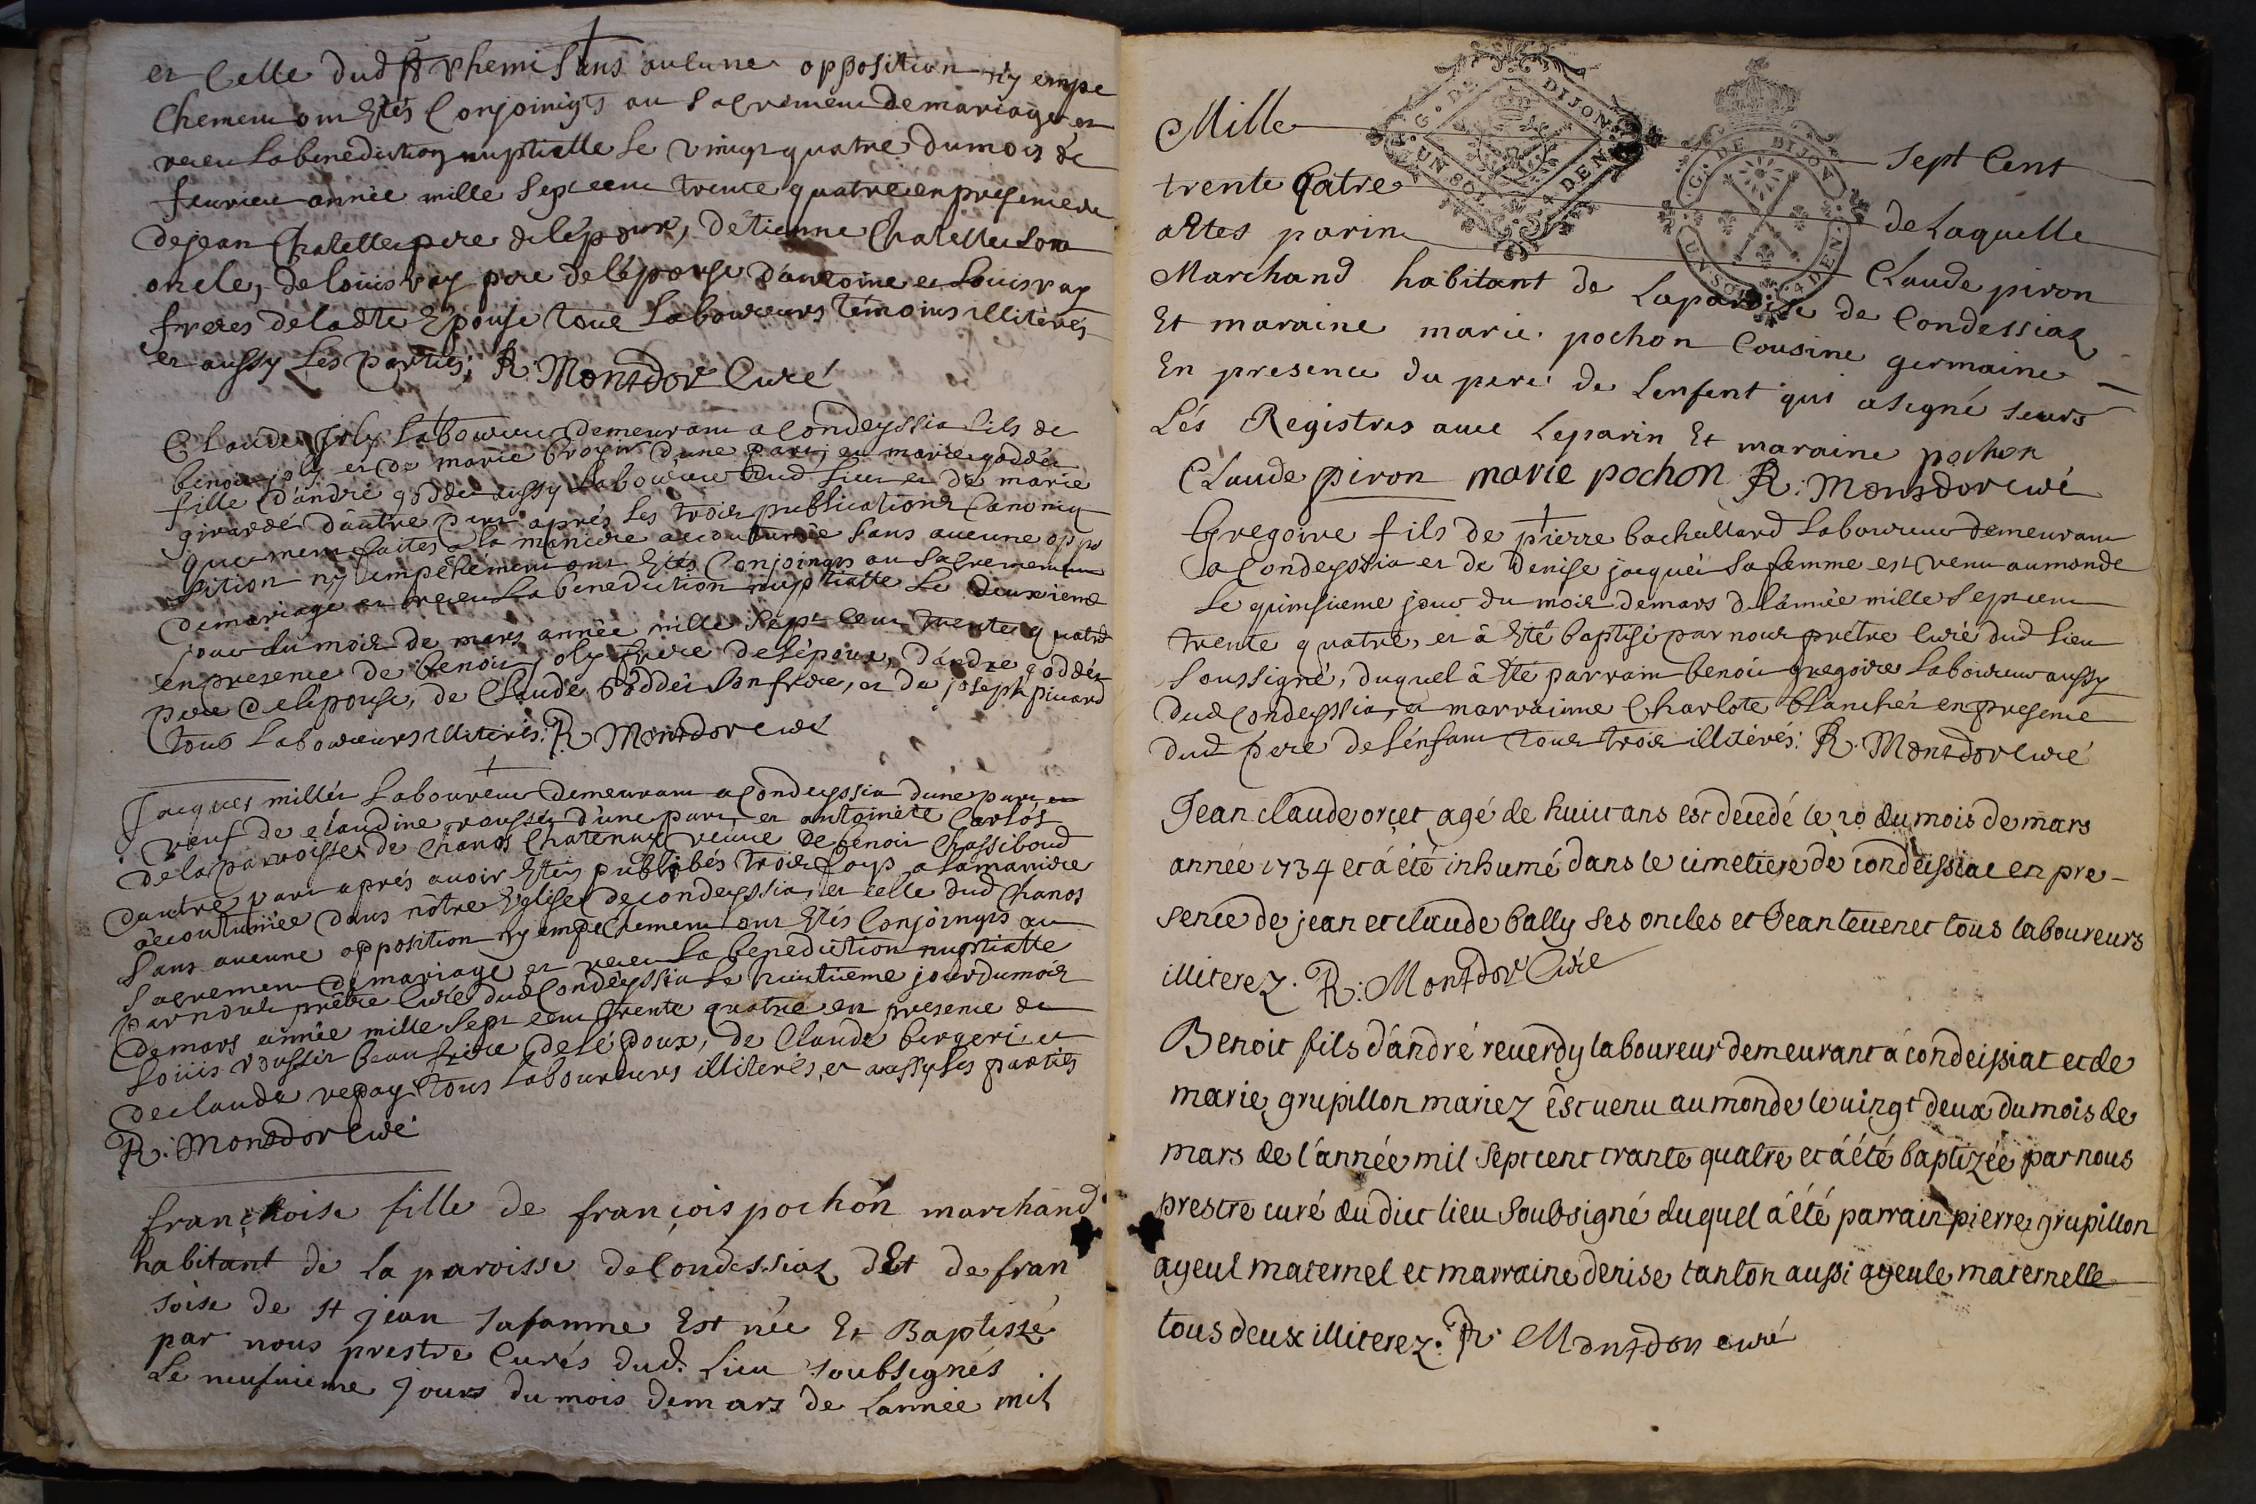 et Celle dud St rhemi sans aucune opposition ny empe
chement ont estés Conjoingts au sacrement de mariage et
receu la benediction nuptialle le vingt quatre du mois de
feurier année mille sept cent trente quatre en presence de
de jean Chatellet pere de lépoux, détienne Chatellet son
oncle, de loüis ray pere de lépouse d'antoine et Louis ray
freres de ladte Epouse tous Laboureurs témoins illitérés
et aussy les parties; R. Montdor Curé
Claude joly Laboureur demeurant a Condeyssia fils de
benoit joly et de marie broyer d'une part, et marie goddet
fille d'andré goddet aussy laboureur dud lieu et de marie
girardet d'autre part aprés les trois publications Canoniq
quement faites a la maniere accoutumée sans aucune oppo
sition ny empéchement ont Estés Conjoingts au sacrement
de mariage et receu la benediction nuptialle le deuxieme
jour du mois de mars année mille sept cent trente quatre
en presence de benoit joly frere de lépoux, d'andre goddet
pere de lepouse, de Claude goddet son frere, et de joseph picard
tous Laboureurs illiterés: R. Montdor curé
Jacques millet Laboureur demeurant a Condeyssia dune part et
veuf de claudine rousset d'une part, et antoinete Carlos
de la parroisse de Chanos Chatenay veuve de benoit Chassiboud
dautre part aprés auoir Estés publibés trois foys a la maniere
accoutumée dans nôtre Eglise de condeyssia, et celle dud Chanos
sans aucune opposition ny empechement ont Estés Conjoingts au
sacrement de mariage et receu la benediction nuptialle
par nous prêtre Curé dud Condeyssia le huictieme jour du mois
de mars année mille sept cent trente quatre en presence de
Loüis rousset beaufrere de lépoux, de Claude bergeriet
de claude repay tous Laboureurs illiterés, et aussy les parties
R. Montdor curé
françhoise fille de françois pochon marchand
habitant de la paroisse de Condessiaz dEt de fran
soise de st jean safamme Est née Et Baptissé
par nous prestre Curés dud. Lieu soubsignés
Le neufuieme jours du mois de mars de Lannée mil
Mille sept Cent
trente qatre de Laquelle
aEtes parin Claude piron
Marchand habitant de Laparoise de Condessiaz
Et maraine marie pochon Cousine germaine
En presence du pere de Lenfent qui asigné seurs
Lés Registres auec Leparin Et maraine pochon
Claude piron marie pochon R. Montdor curé
Gregoire fils de pierre bachellard Laboureur demeurant
a Condeyssia et de Denise jacquet sa femme est venu au monde
le quinsieme jour du mois de mars de lannée mille sept cent
trente quatre, et â Esté baptisé par nous prêtre Curé dud lieu
soussigné, duquel â été parrain benoit gregoire Laboureur aussy
dud Condeyssia, et marraine Charlote blanchet en presence
dud pere de lénfant tous trois illitérés: R. Montdor curé
Jean claude orçet agé de huict ans est decedé le 20 du mois de mars
année 1734 et á été inhumé dans le cimetiere de condeissiat en pre-
sence de jean et claude bally ses oncles et Jean teuenet tous laboureurs
illiterez. R. Montdor Curé
Benoit fils d'andré reuerdy laboureur demeurant á condeissiat et de
marie grupillon mariez ést uenu au monde le uingt deux du mois de
mars de l'année mil sept cent trante quatre et á été baptizée par nous
prestre curé du dict lieu soubsigné duquel á été parrain pierre grupillon
ayeul maternel et marraine denise tanton aussi ayeule maternelle
tous deux illiterez. R. Montdor curé
G. DE DIJON
UN SOL 4 DEN.
G. DE DIJON
UN SOL 4 DEN.